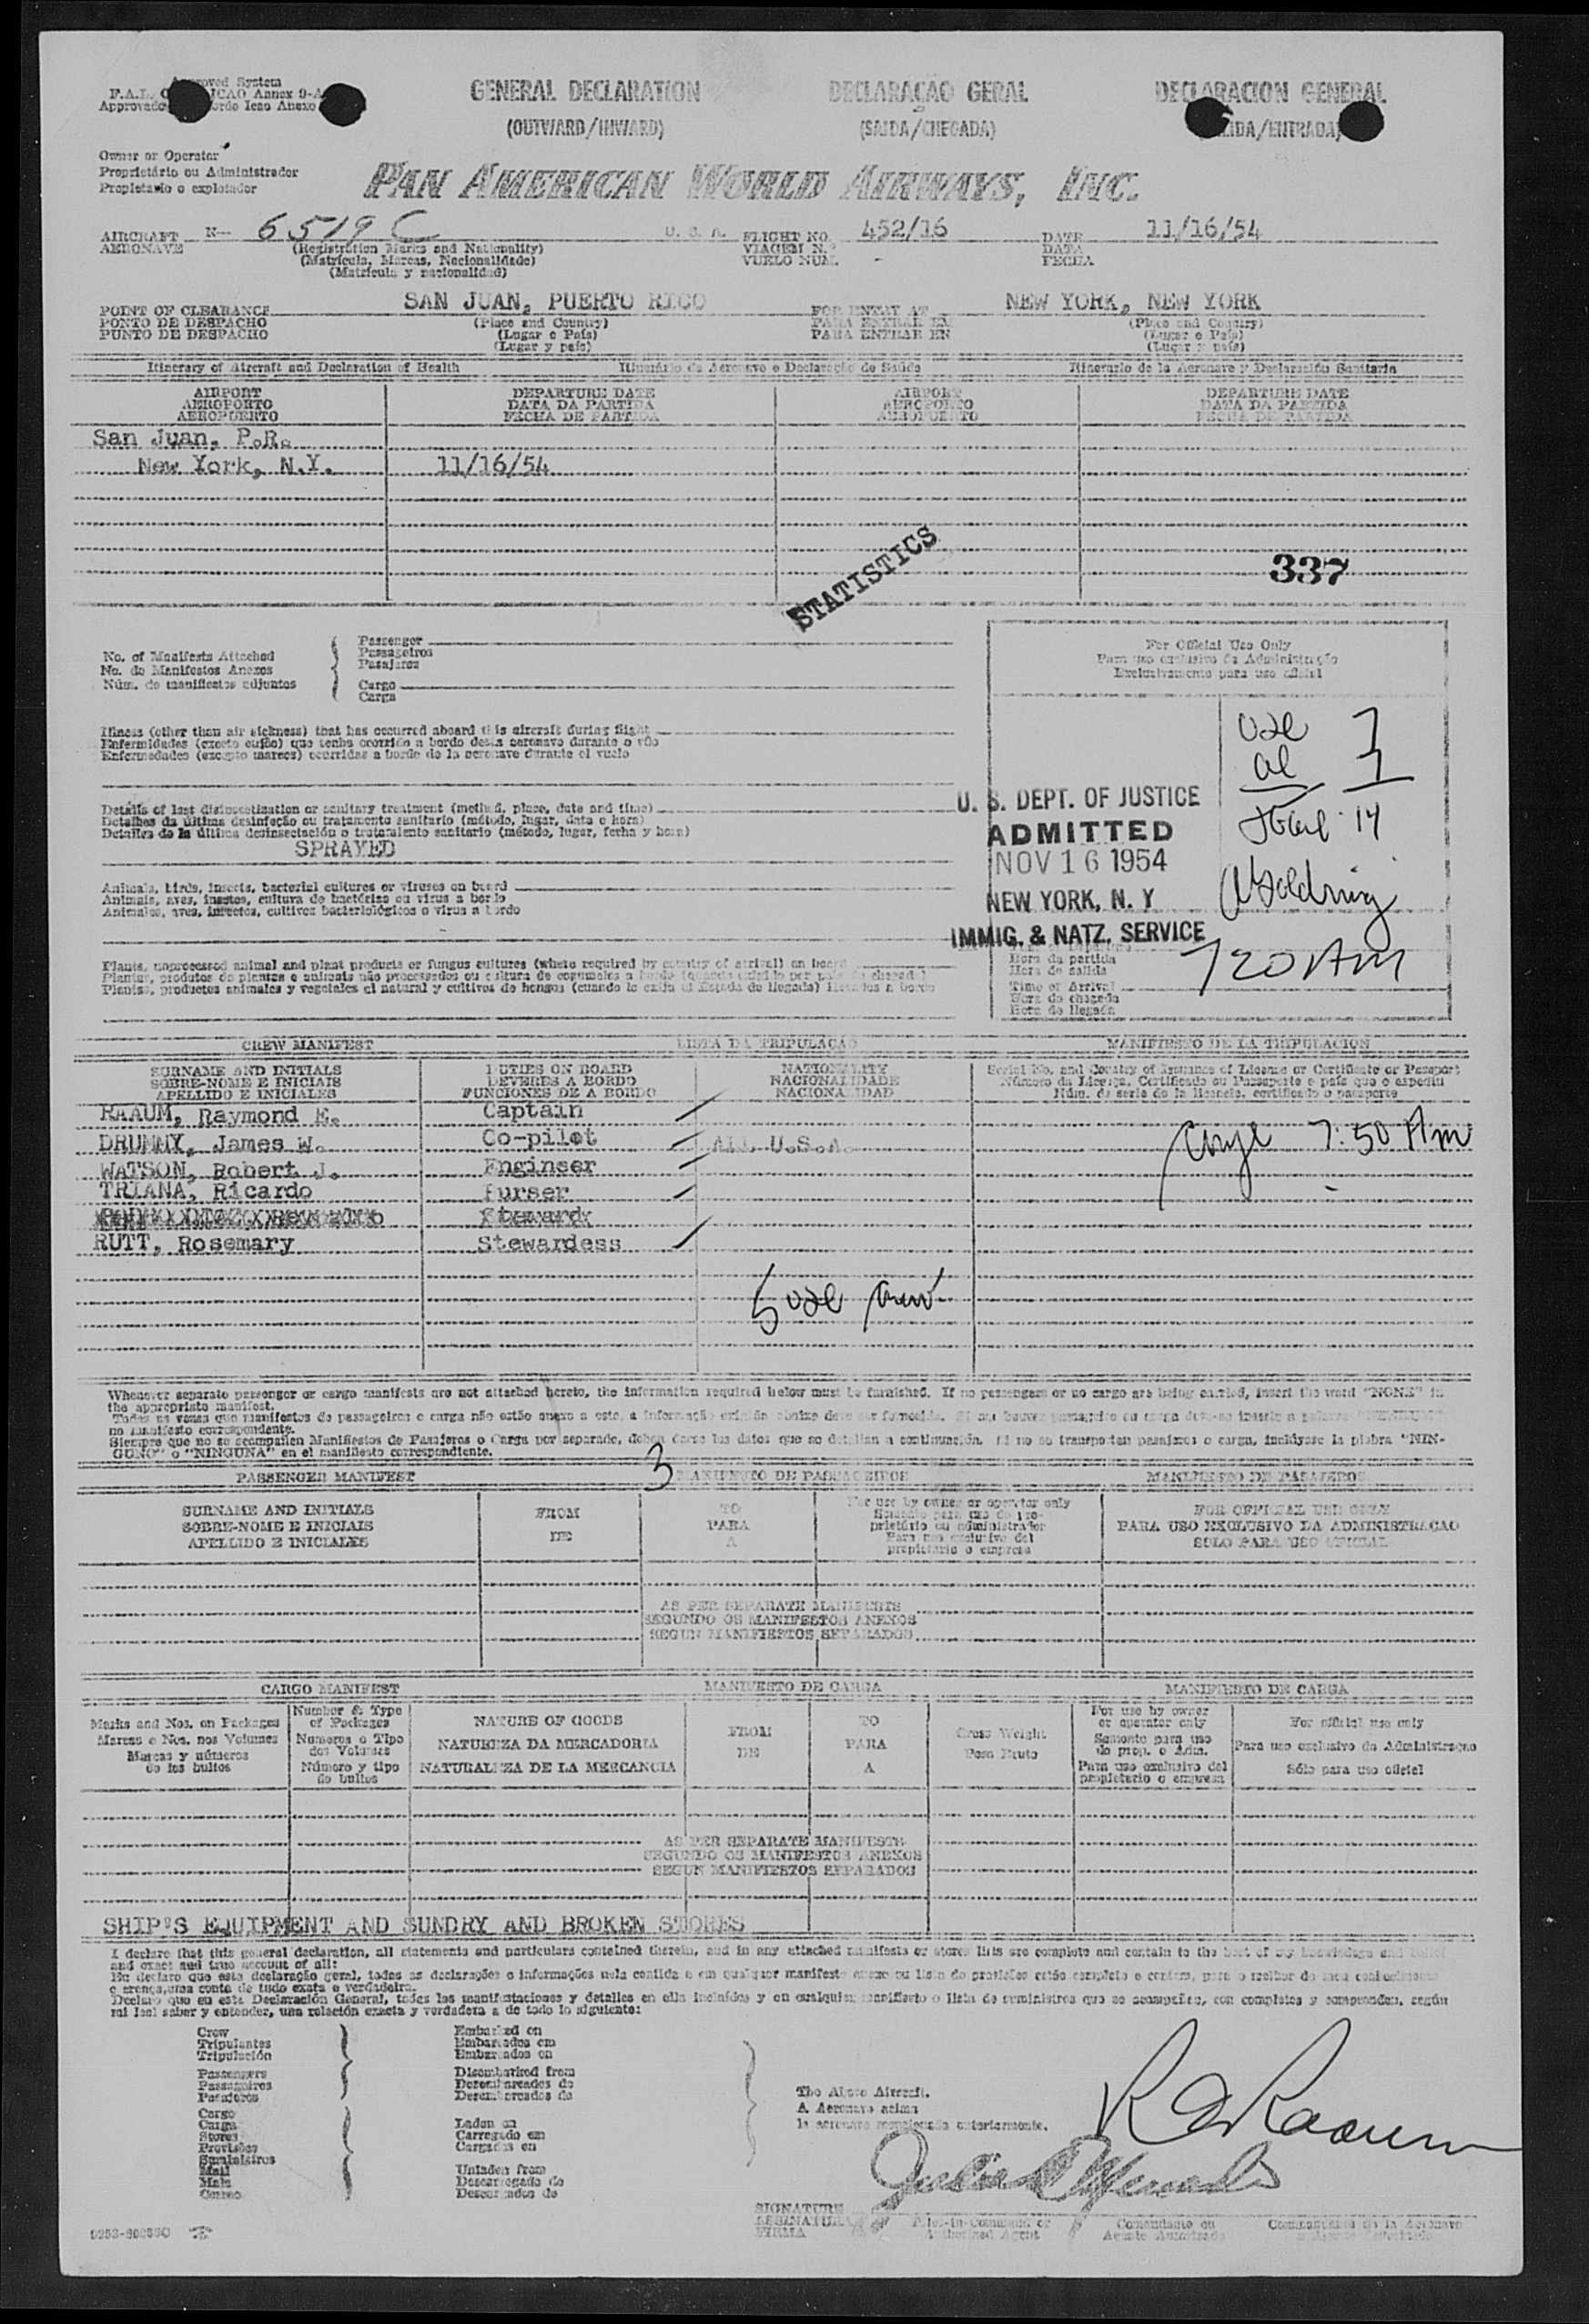 GENERAL DECLARATION DECLARAÇÃO GERAL DECLARACION GENERAL
(OUTWARD/INWARD) (SAIDA/CHEGADA)
Owner or Operator
Proprietário ou Administrador
Propietario o explotador
PAN AMERICAN WORLD AIRWAYS, INC.
AIRCRAFT N- 6519C U. S. A. FLIGHT NO. 452/16 DATE 11/16/54
AERONAVE (Registration Marks and Nationality) VIAGEM N.º DATA
(Matrícula, Marcas, Nacionalidade) VUELO NUM. FECHA
(Matrícula y nacionalidad)
POINT OF CLEARANCE SAN JUAN, PUERTO RICO FOR ENTRY AT NEW YORK, NEW YORK
PONTO DE DESPACHO (Place and Country) PARA ENTRAR EM (Place and Country)
PUNTO DE DESPACHO (Lugar e País) PARA ENTRAR EN (Lugar e País)
(Lugar y país) (Lugar y país)
Itinerary of Aircraft and Declaration of Health Itinerário da Aeronave e Declaração de Saúde Itinerario de la Aeronave y Declaración Sanitaria
AIRPORT DEPARTURE DATE AIRPORT DEPARTURE DATE
AEROPORTO DATA DA PARTIDA AEROPORTO DATA DA PARTIDA
AEROPUERTO FECHA DE PARTIDA AEROPUERTO FECHA DE PARTIDA
San Juan, P.R.
New York, N.Y. 11/16/54
STATISTICS
337
No. of Manifests Attached
No. de Manifestos Anexos
Núm. de manifiestos adjuntos
Passenger
Passageiros
Pasajeros
Cargo
Carga
For Official Use Only
Para uso exclusivo da Administração
Exclusivamente para uso oficial
Illness (other than air sickness) that has occurred aboard this aircraft during flight
Enfermidades (exceto enjôo) que tenha ocorrido a bordo desta aeronave durante o vôo
Enfermedades (excepto mareos) ocurridas a bordo de la aeronave durante el vuelo
Details of last disinsectization or sanitary treatment (method, place, date and time)
Detalhes da última desinfeção ou tratamento sanitario (método, lugar, data e hora)
Detalles de la última desinsectación o tratamiento sanitario (método, lugar, fecha y hora)
SPRAYED
U. S. DEPT. OF JUSTICE
ADMITTED
NOV 16 1954
NEW YORK, N. Y
IMMIG. & NATZ. SERVICE
14
Animals, birds, insects, bacterial cultures or viruses on board
Animais, aves, insetos, cultura de bactérias ou virus a bordo
Animales, aves, insectos, cultivos bacteriológicos o virus a bordo
Plants, unprocessed animal and plant products or fungus cultures (where required by country of arrival) on board
Plantas, productos animales y vegetales al natural y cultivos de hongos (cuando lo exija el Estado de llegada) llevados a bordo
Hora da partida
Hora de salida
720 AM
Time of Arrival
Hora de chegada
Hora de llegada
CREW MANIFEST LISTA DA TRIPULAÇAO MANIFIESTO DE LA TRIPULACION
SURNAME AND INITIALS DUTIES ON BOARD NATIONALITY Serial No. and Country of Issuance of License or Certificate or Passport
SOBRE-NOME E INICIAIS DEVERES A BORDO NACIONALIDADE Número da Licença, Certificado ou Passaporte e país que o expediu
APELLIDO E INICIALES FUNCIONES DE A BORDO NACIONALIDAD Núm. de serie de la licencia, certificado o pasaporte
RAAUM, Raymond E. Captain
DRUMMY, James W. Co-pilot ALL U.S.A. 7:50 Am
WATSON, Robert J. Engineer
TRIANA, Ricardo Purser
RUTT, Rosemary Stewardess
5 use crew
Whenever separate passenger or cargo manifests are not attached hereto, the information required below must be furnished. If no passengers or no cargo are being carried, insert the word "NONE" in
the appropriate manifest.
no manifesto correspondente.
Siempre que no se acompañen Manifiestos de Pasajeros o Carga por separado, deben darse los datos que se detallan a continuación. Si no se transporten pasajeros o carga, inclúyase la plabra "NIN-
GUNO" o "NINGUNA" en el manifiesto correspondiente.
3
PASSENGER MANIFEST MANIFESTO DE PASSAGEIROS MANIFIESTO DE PASAJEROS
SURNAME AND INITIALS FROM TO For use by owner or operator only FOR OFFICIAL USE ONLY
SOBRE-NOME E INICIAIS DE PARA PARA USO EXCLUSIVO DA ADMINISTRACAO
APELLIDO E INICIALES A SOLO PARA USO OFICIAL
AS PER SEPARATE MANIFESTS
SEGUNDO OS MANIFESTOS ANEXOS
SEGUN MANIFIESTOS SEPARADOS
CARGO MANIFEST MANIFESTO DE CARGA MANIFIESTO DE CARGA
Marks and Nos. on Packages Number & Type of Packages NATURE OF GOODS FROM TO Gross Weight For use by owner or operator only For official use only
Marcas e Nos. nos Volumes Numeros e Tipo dos Volumes NATUREZA DA MERCADORIA DE PARA Peso Bruto Somente para uso do prop. e Adm. Para uso exclusivo da Administraçao
Marcas y números de los bultos Número y tipo de bultos NATURALEZA DE LA MERCANCIA A Para uso exclusivo del propietario o empresa Sólo para uso oficial
AS PER SEPARATE MANIFESTS
SEGUNDO OS MANIFESTOS ANEXOS
SEGUN MANIFIESTOS SEPARADOS
SHIP'S EQUIPMENT AND SUNDRY AND BROKEN STORES
I declare that this general declaration, all statements and particulars contained therein, and in any attached manifests or stores lists are complete and contain to the best of my knowledge and belief
and exact and true account of all:
e crença, uma conta de tudo exata e verdadeira.
Declaro que en esta Declaración General, todas las manifestaciones y detalles en ella incluídos y en cualquier manifiesto o lista de suministros que se acompañen, son completos y comprenden, según
mi leal saber y entender, una relación exacta y verdadera a de todo lo siguiente:
Crew
Tripulantes
Tripulación
Passengers
Passageiros
Pasajeros
Cargo
Carga
Stores
Provisões
Suministros
Mail
Mala
Correo
Embarked on
Embarcados em
Embarcados en
Disembarked from
Desembarcados de
Desembarcados de
Laden on
Carregado em
Cargados en
Unladen from
Descarregado de
Descargados de
The Above Aircraft.
A Aeronave acima
la aeronave mencionada anteriormente.
SIGNATURE
ASSINATURA
FIRMA
Pilot-in-Command or Authorized Agent
Comandante ou Agente Autorizado